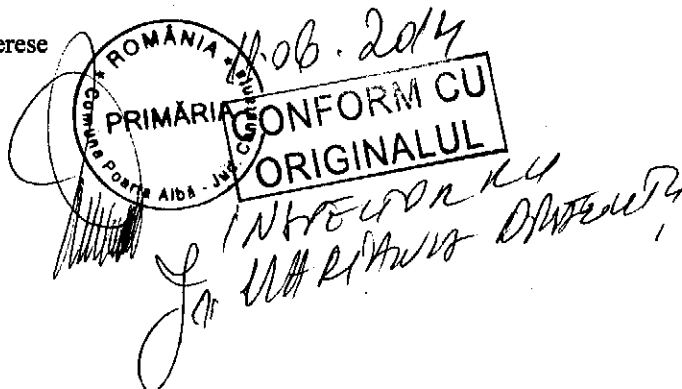 erese
11.06.2014
* ROMÂNIA *
PRIMĂRIA
Comuna Poarta Albă - Jud. Constanța
CONFORM CU
ORIGINALUL
INSPECTOR
MARIANA